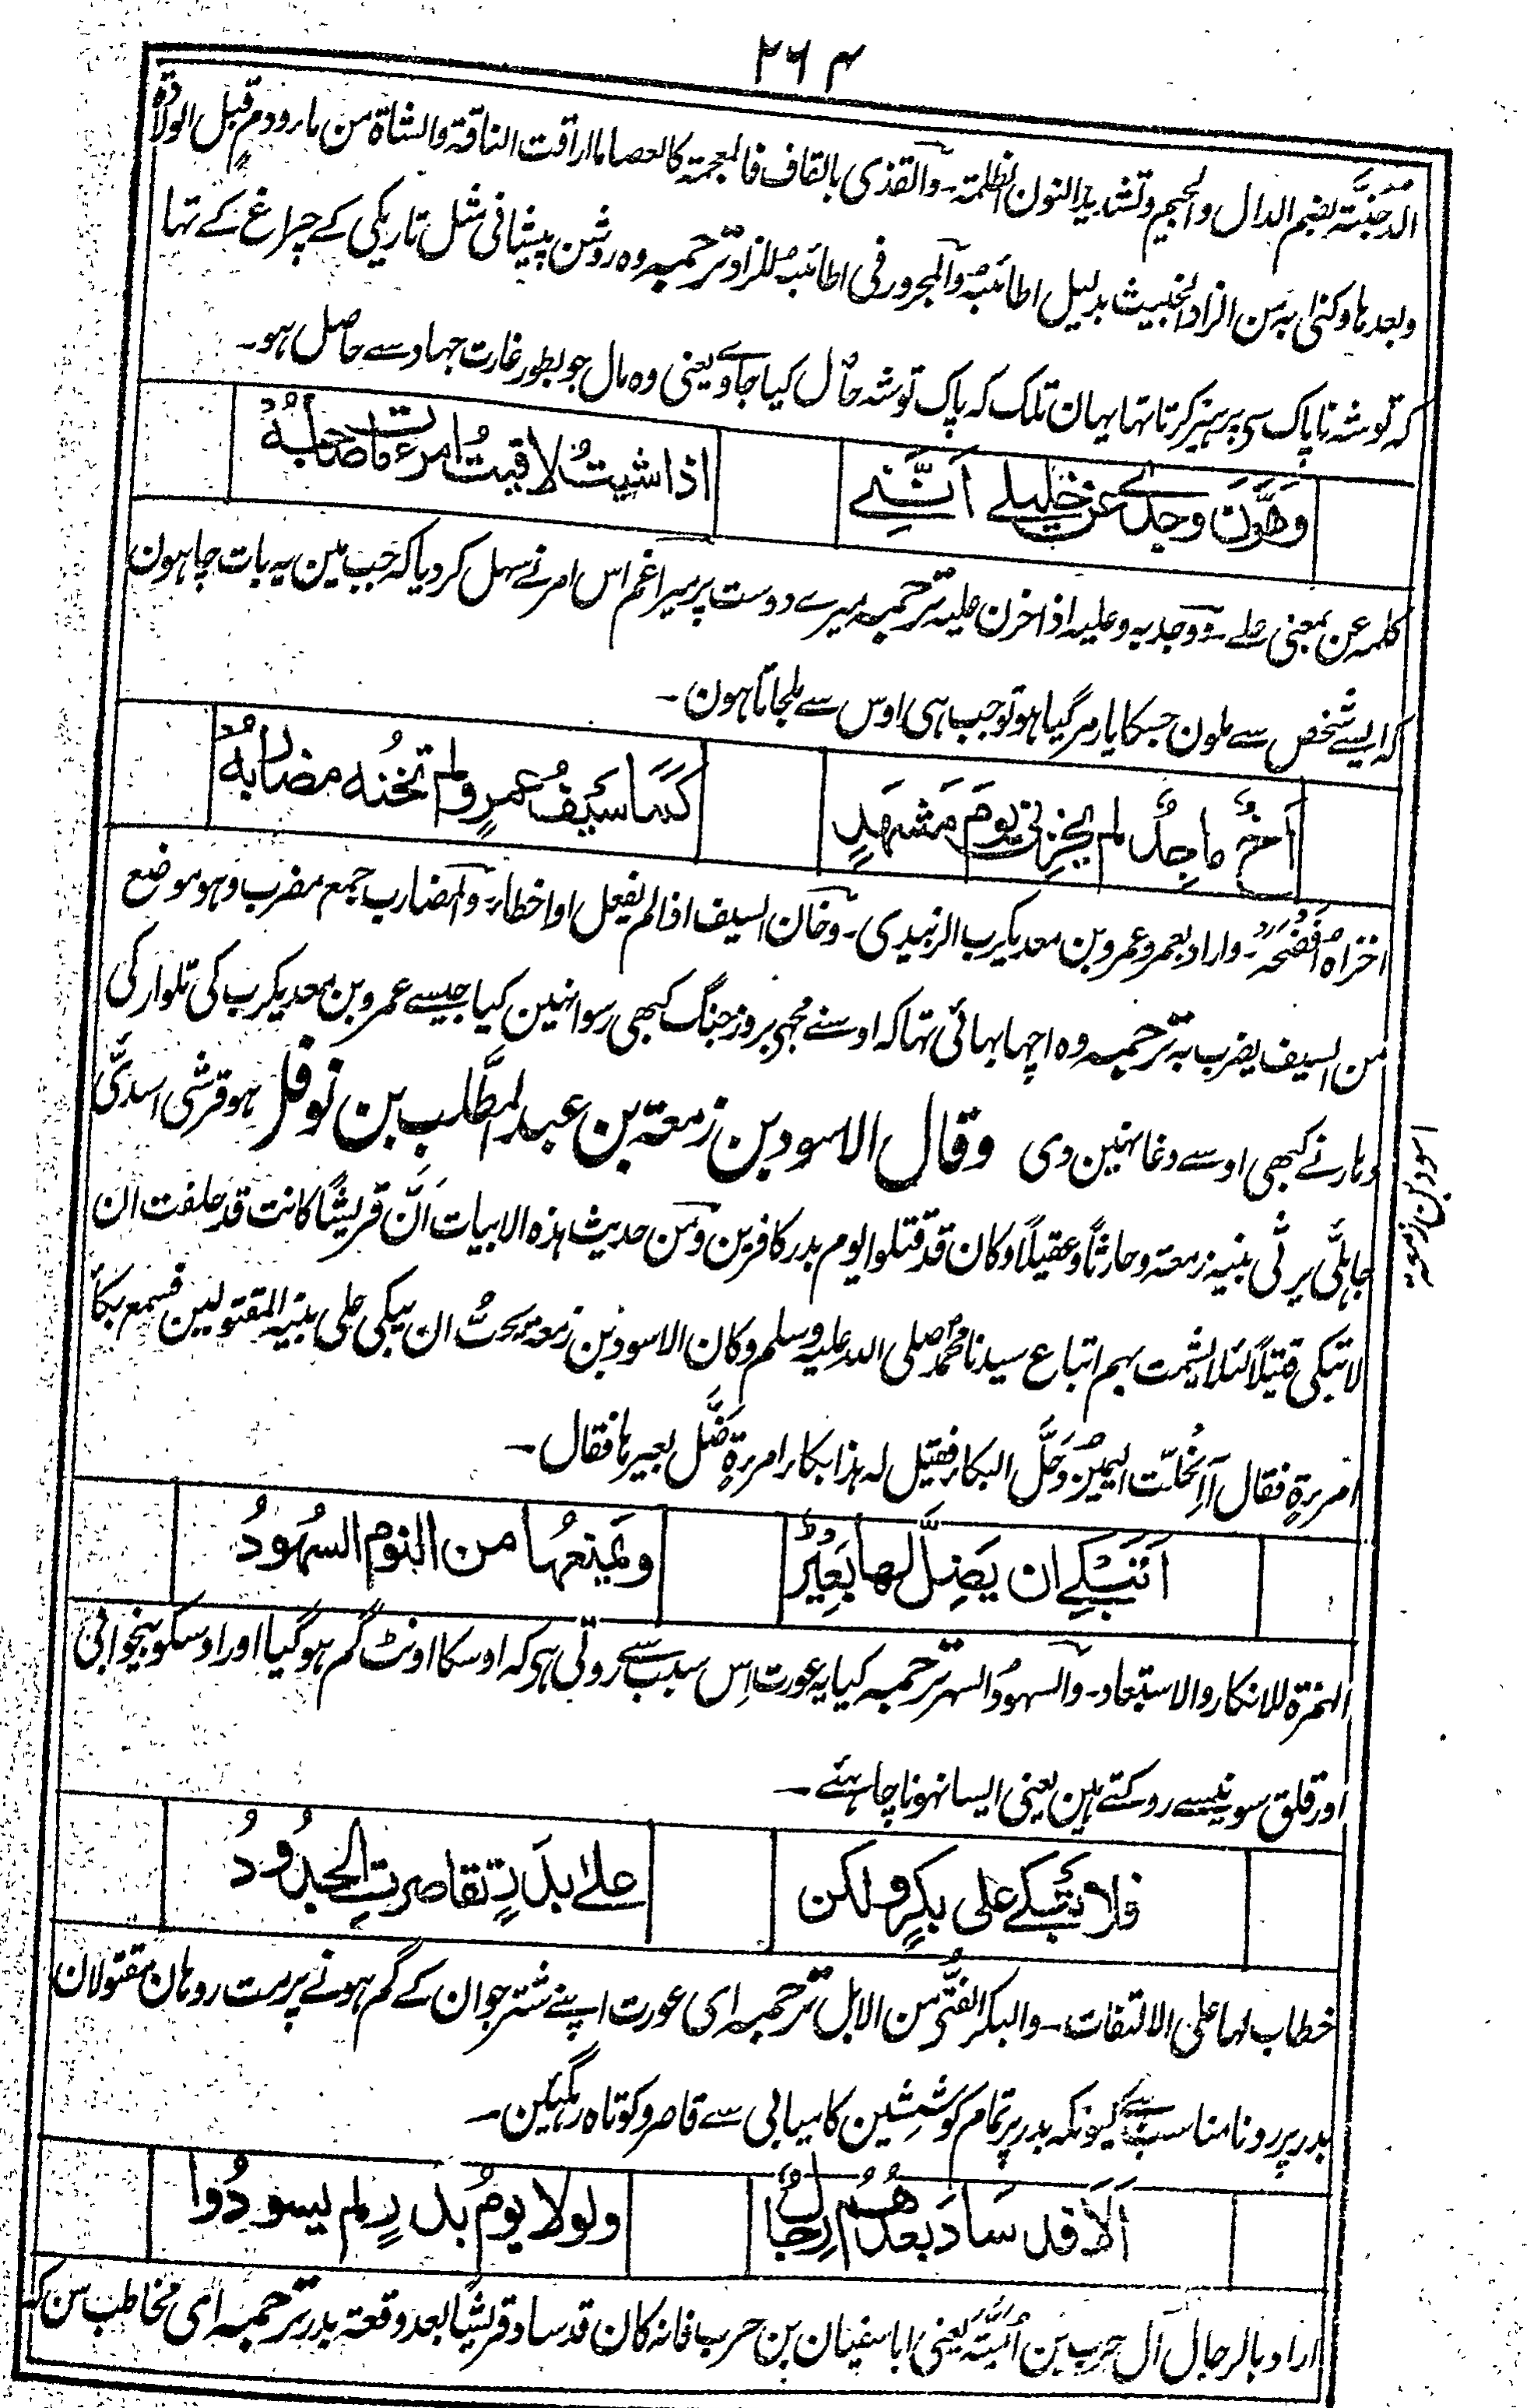 ۲۶۴
الدجنّة بضم الدال والجیم وتشدید النون الظلمتہ۔ والقذی بالقاف فالمعجمتہ کالعصا ما اراقت الناقتہ والشاۃ من ماء ودم قبل الولادۃ
وبعدہا وکنی بہ من الزاد الخبیث بدلیل اطائبہ والمجرور فی اطائبہ للزاد ترجمہ وہ روشن پیشانی مثل تاریکی کے چراغ کے تہا
کہ توشہ ناپاک سی پرہیز کرتا تہا یہان تلک کہ پاک توشہ حاصل کیا جاوے یعنی وہ مال جو بطور غارت جہاد سے حاصل ہو۔
وَهَوَّنَ وجدی عن خلیلے اَنَّنِے اذا شیتُ لاقیتُ امرءً مات صاحبُهٗ
کلمہ عن بمعنی علے۔ ووجد بہ وعلیہ اذا حزن علیہ ترجمہ میرے دوست پر میرا غم اس امر نے سہل کر دیا کہ جب مین یہ بات چاہون
کہ ایسے شخص سے ملون جسکا یار مر گیا ہو تو جب ہی اوس سے ملجاتا ہون۔
اَخٌ ماجِدٌ لم یُخزِنی یَومَ مَشهَدٍ کَمَا سَیفُ عمرٍو لم تَخُنه مضاربُهٗ
اخزاہ افضحہ۔ واراد بعمرو عمرو بن معدیکرب الزبیدی۔ وخان السیف اذا لم یفعل او اخطاء۔ والمضارب جمع مضرب وہو موضع
من السیف یضرب بہ ترجمہ وہ اچہا بہائی تہا کہ اوسنے مجہی بروز جنگ کبھی رسوا نہین کیا جیسے عمرو بن معدیکرب کی تلوار کی
دہار نے کبھی اوسے دغا نہین دی وقال الاسود بن زمعتہ بن عبد المطّلب بن نوفل ہو قرشی اسدیّ
جاہلّی یرثی بنیہ زمعتہ وحارثاً وعقیلاً وکان قد قتلوا یوم بدر کافرین ومن حدیث ہذہ الابیات اَنَّ قریشًا کانت قد حلفت ان
لا تبکی قتیلاً لئلا یشمت بہم اتباع سیدنا محمد صلی اللہ علیہ وسلم وکان الاسود بن زمعۃ یحبُّ ان یبکی علی بنیہ المقتولین فسمع بکاءَ
امرءۃٍ فقال أانحلّت الیمین وحلَّ البکاء فقیل لہ ہذا بکاء امرءۃٍ ضَلَّ بعیرہا فقال۔
اَتَبْکِے ان یَضِلَّ لها بَعِیْرٌ ویمنعُها من النوم السُهُودُ
الہمزۃ للانکار والاستبعاد۔ والسہود السہر ترجمہ کیا یہ عورت اِس سبب سے روتی ہی کہ اوسکا اونٹ گم ہو گیا اور اوسکو بیخوابی
اور قلق سونیسے روکتے ہین یعنی ایسا نہونا چاہئے۔
فلا تَبکے علی بکرٍ ولکن علےٰ بدرٍ تقاصرت الجُدُودُ
خطاب لہا علی الالتفات۔ والبکر الفتی من الابل ترجمہ ای عورت اپنے شتر جوان کے گم ہونے پر مت رو ہان مقتولان
بدر پر رونا مناسب ہے کیونکہ بدر پر تمام کوششین کامیابی سے قاصر و کوتاہ رہگئین۔
اَلَا قد سَادَ بعدَهُم رِجالٌ ولولا یومُ بدرٍ لم یسودُوا
اراد بالرجال آل حرب بن امیّتہ یعنی ابا سفیان بن حرب فانہ کان قد ساد قریشًا بعد وقعتہ بدر ترجمہ ای مخاطب سن کہ
اسود بن زمعہ